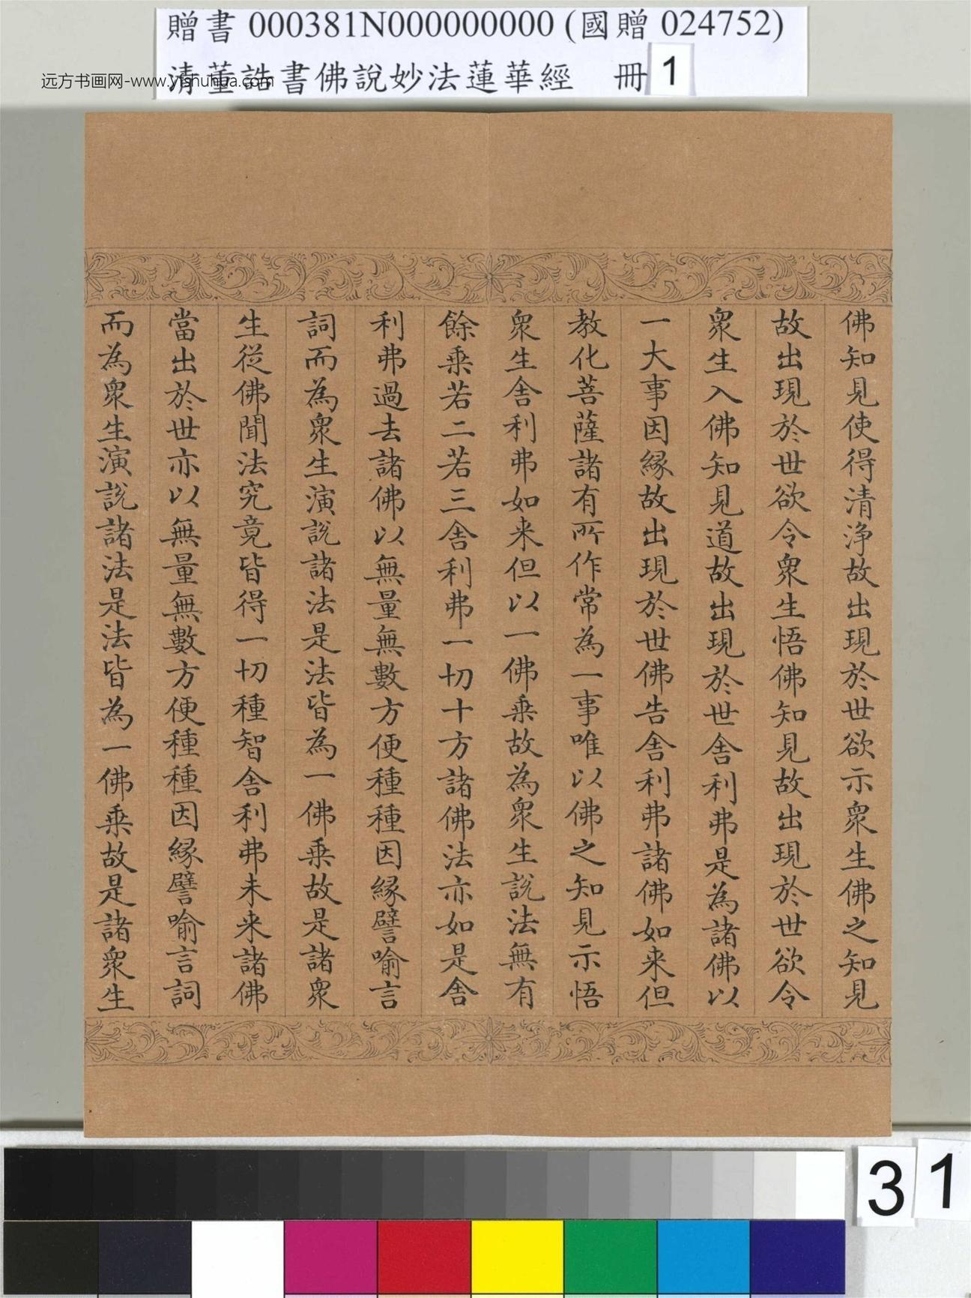 贈書 000381N000000000 (國贈 024752)
清董誥書佛說妙法蓮華經 冊1
远方书画网-www.yishuhua.com
佛知見使得清淨故出現於世欲示衆生佛之知見
故出現於世欲令衆生悟佛知見故出現於世欲令
衆生入佛知見道故出現於世舍利弗是為諸佛以
一大事因緣故出現於世佛告舍利弗諸佛如来但
教化菩薩諸有所作常為一事唯以佛之知見示悟
衆生舍利弗如来但以一佛乗故為衆生説法無有
餘乗若二若三舍利弗一切十方諸佛法亦如是舍
利弗過去諸佛以無量無數方便種種因緣譬喻言
詞而為衆生演説諸法是法皆為一佛乗故是諸衆
生從佛聞法究竟皆得一切種智舍利弗未来諸佛
當出於世亦以無量無數方便種種因緣譬喻言詞
而為衆生演説諸法是法皆為一佛乗故是諸衆生
3 1